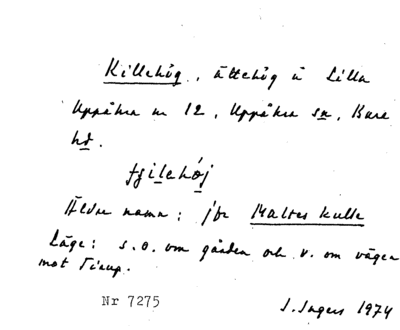 Killehög, ättehög å Lilla
Uppåkra nr 12, Uppåkra sn, Bara
hd.
Äldre namn: jfr Maltes kulle
Läge: s.o. om gården och v. om vägen
mot
Nr 7275 J. Ingers 1974